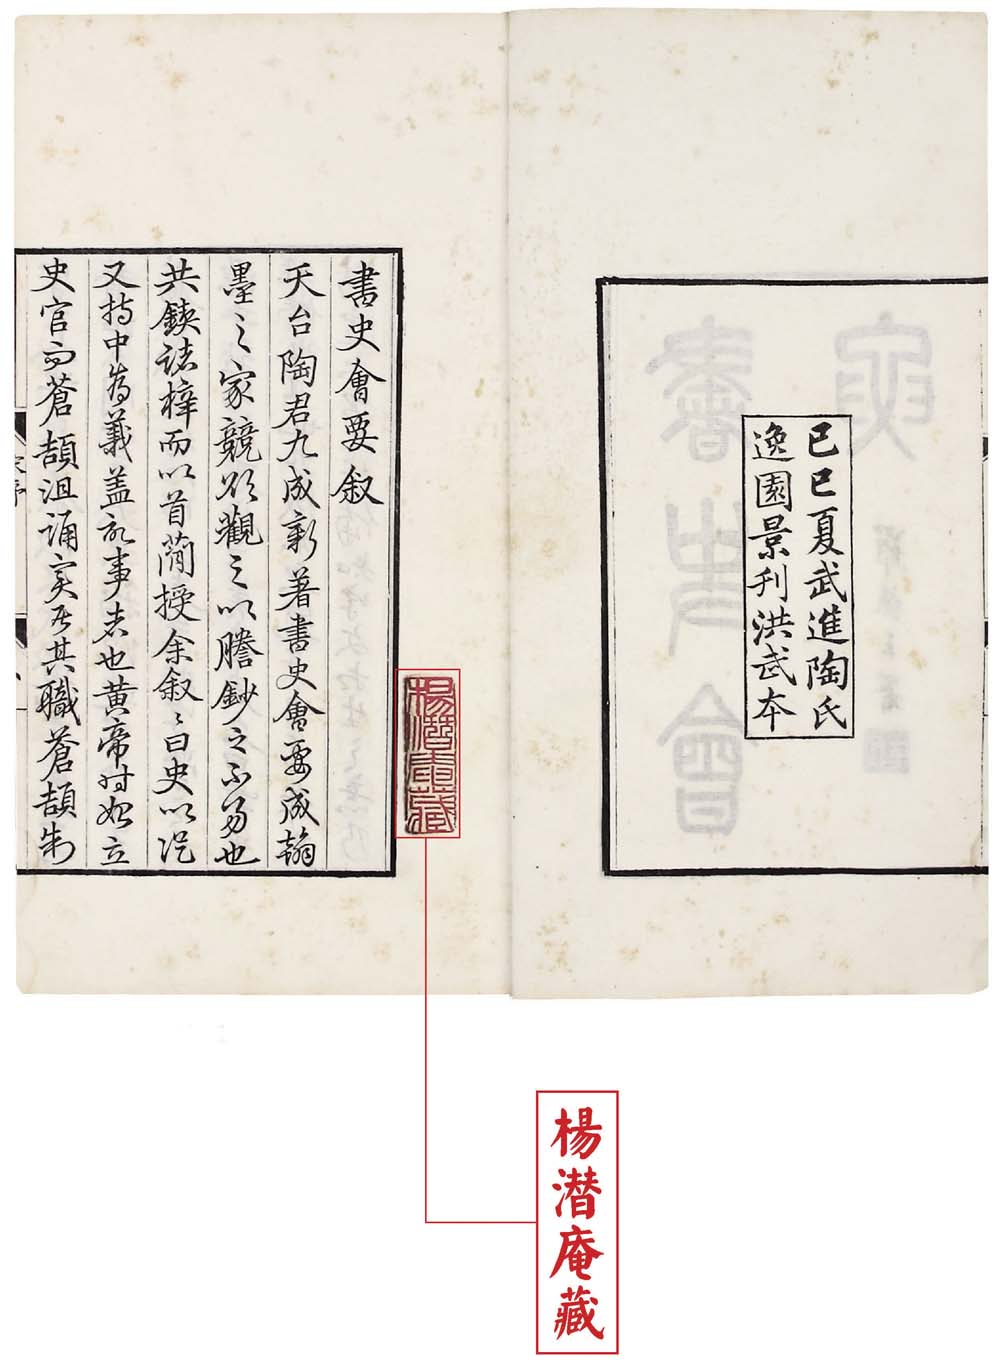 己巳夏武進陶氏
逸園景刊洪武本
書史會要叙
天台陶君九成新著書史會要成翰
墨之家競欲觀之以謄鈔之不易也
共鋟諸梓而以首蕳授余叙〻曰史以從
又持中為義盖記事者也黄帝时始立
史官而蒼頡沮誦实居其職蒼頡制
楊潛庵藏
楊潜庵藏